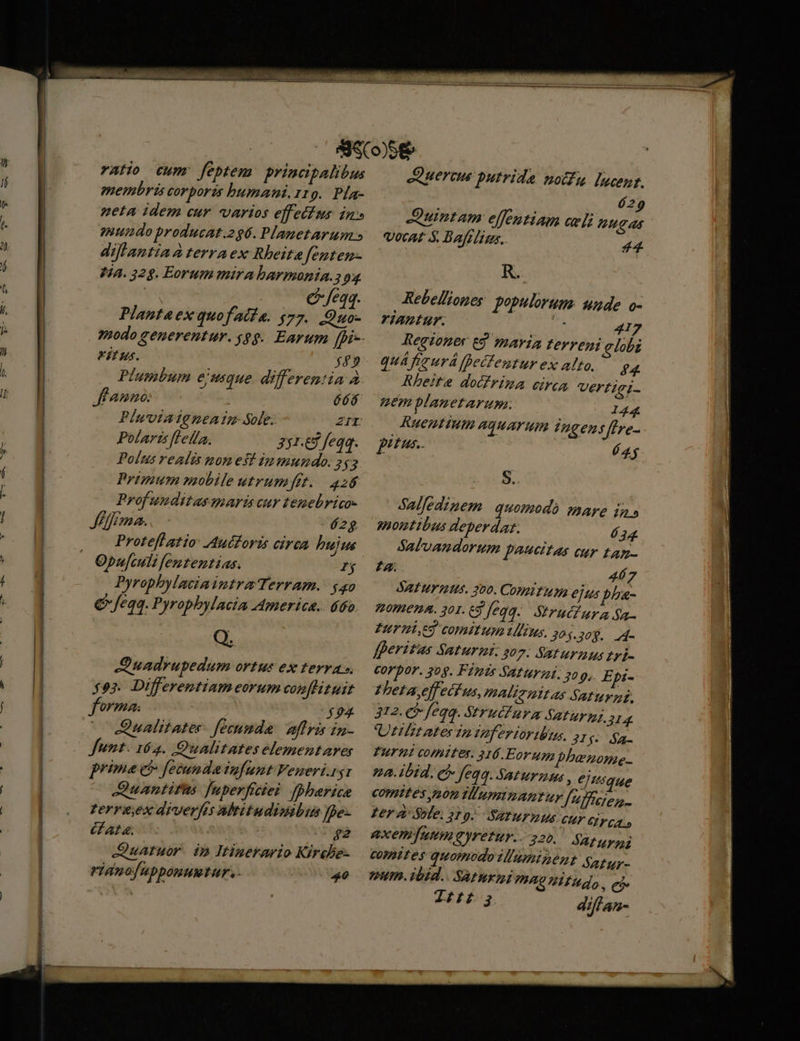 ratio cum ſeptem principalibus
membris corporis humani. 119. Pla-
neta idem cur varios effectus in
mundo producat. 286. Planetarum
diſtantia à terra ex Rheita ſenten-
tia. 328. Eorum mira harmonia. 394
& ſeqq.
Planta ex quo facta. 577. Quo-
modo generentur. 588. Earum ſpi-
ritus. 589
Plumbum ejusque differentia à
ſtanno. 666
Pluvia ignea in Sole. 211
Polaris ſtella. 351. & ſeqq.
Polus realis non eſt in mundo. 353
Primum mobile utrum ſit. 426
Profunditas maris cur tenebrico-
ſiſſima. 628
Proteſtatio Auctoris circa hujus
Opuſculi ſententias. 15
Pyrophylacia intra Terram. 540
& ſeqq. Pyrophylacia America. 660
Q.
Quadrupedum ortus ex terra.
593. Differentiam eorum conſtituit
forma. 594
Qualitates ſecunda aſtris in-
ſunt. 164. Qualitates elementares
prima & ſecunda inſunt Veneri. 151
Quantitas ſuperficiei ſphærica
terra, ex diverſis altitudinibus ſpe-
ctata. 82
Quatuor in Itinerario Kirche-
riano ſupponuntur. 40
Quercus putrida noctu lucent.
629
Quintam eſſentiam cæli nugas
vocat S. Baſilius. 44
R.
Rebelliones populorum unde o-
riantur. 417
Regiones & maria terreni globi
quâ figurâ ſpectentur ex alto. 84
Rheita doctrina circa vertigi-
nem planetarum. 144
Ruentium aquarum ingens ſtre-
pitus. 645
S.
Salſedinem quomodò mare in
montibus deperdat. 634
Salvandorum paucitas cur tan-
ta. 467
Saturnus. 300. Comitum ejus pha-
nomena. 301. & ſeqq. Structura Sa-
turni, & comitum illius. 305. 308. A-
ſperitas Saturni. 307. Saturnus tri-
corpor. 308. Finis Saturni. 309. Epi-
theta, effectus, malignitas Saturni.
312. & ſeqq. Structura Saturni. 314
Utilitates in inferioribus. 315. Sa-
turni comites. 316. Eorum phænome-
na. ibid. & ſeqq. Saturnus, ejusque
comites non illuminantur ſufficien-
ter à Sole. 319. Saturnus cur circa
axem ſuum gyretur. 320. Saturni
comites quomodo illuminent Satur-
num. ibid. Saturni magnitudo, &
Tttt 3 diſtan-